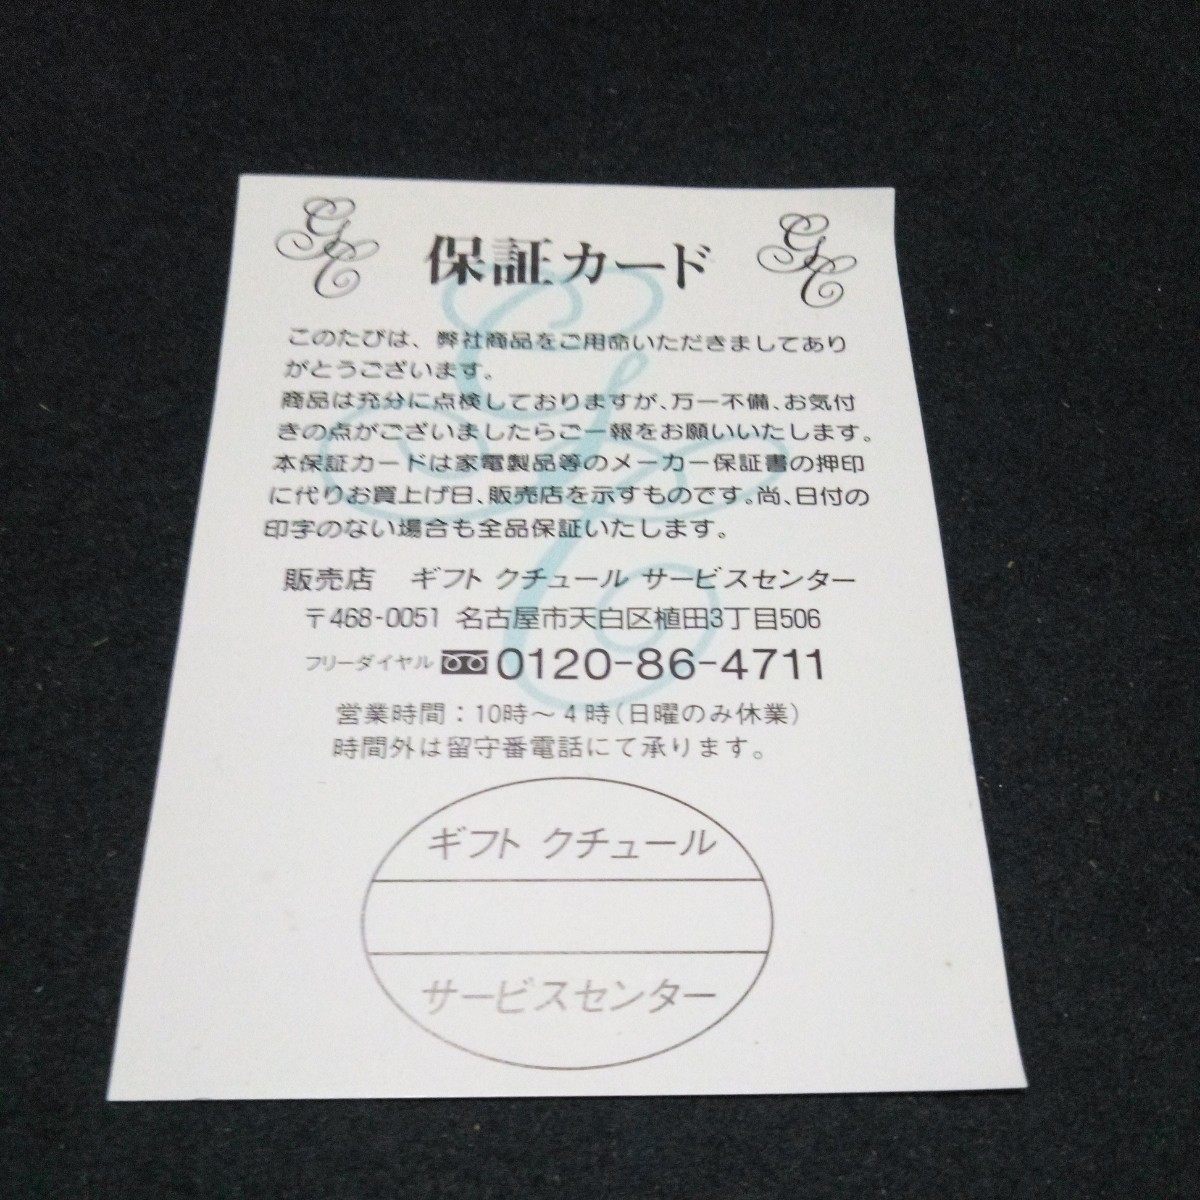 GC
保証カード
GC
このたびは、弊社商品をご用命いただきましてあり
がとうございます。
商品は充分に点検しておりますが、万一不備、お気付
きの点がございましたらご一報をお願いいたします。
本保証カードは家電製品等のメーカー保証書の押印
に代りお買上げ日、販売店を示すものです。尚、日付の
印字のない場合も全品保証いたします。
販売店 ギフト クチュール サービスセンター
〒468-0051 名古屋市天白区植田3丁目506
フリーダイヤル 0120-86-4711
営業時間：10時～4時(日曜のみ休業)
時間外は留守番電話にて承ります。
ギフト クチュール
サービスセンター